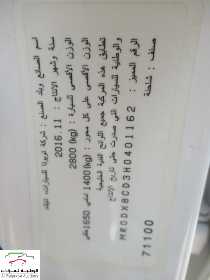 اسم الصانع وبلد الصنع : شركة تويوتا للسيارات، تايلاند
سنة وشهر الإنتاج : 2016.11
الوزن الأقصى للسيارة : 2800 (kg)
الوزن الأقصى على كل محور : 1400 (kg) أمامي 1650 خلفي
تطابق هذه المركبة جميع اللوائح الفنية الخليجية
والوطنية للسيارات التي صدرت حتى تاريخ الإنتاج
الرقم المميز : MR0DX8CD3H0401162
صنف : شاحنة
71100